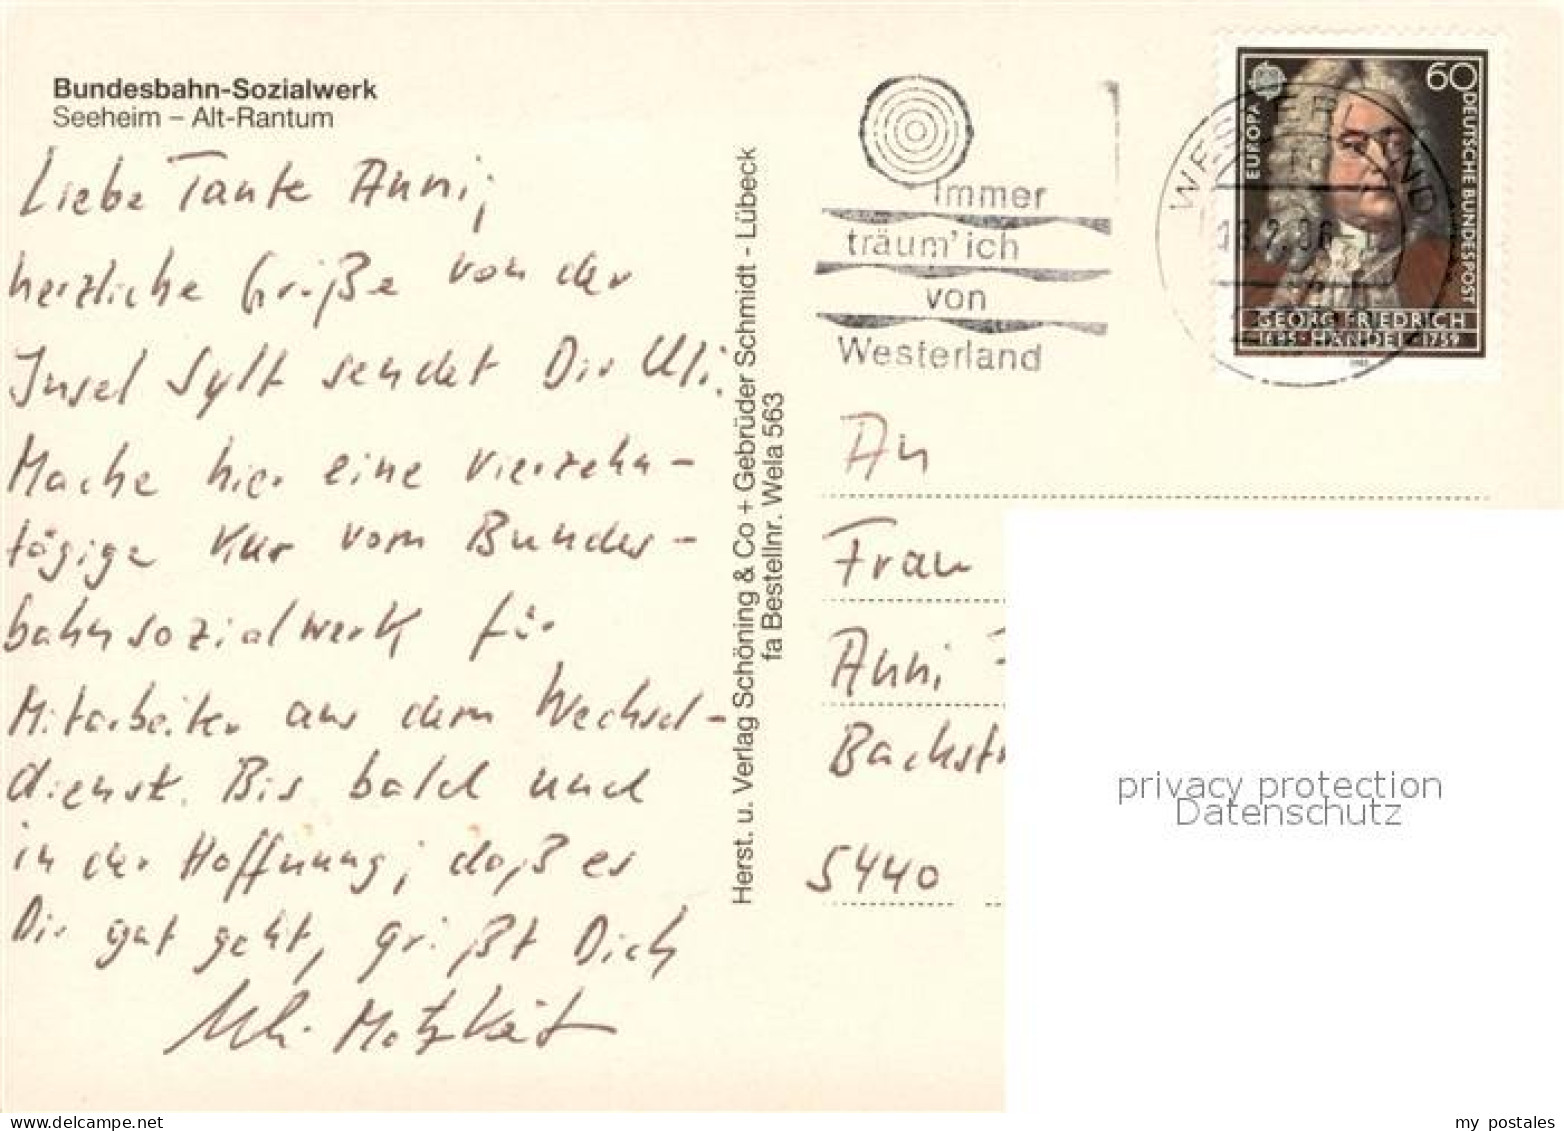 Bundesbahn-Sozialwerk
Seeheim – Alt-Rantum
Liebe Tante Anni,
herzliche Grüße von der
Insel Sylt sendet Dir Uli.
Mache hier eine vierzehn-
tägige Kur vom Bundes-
bahnsozialwerk für
Mitarbeiter aus dem Wechsel-
dienst. Bis bald und
in der Hoffnung, daß es
Dir gut geht, grüßt Dich
Uli
Herst. u. Verlag Schöning & Co + Gebrüder Schmidt - Lübeck
fa Bestellnr. Wela 563
Immer
träum' ich
von
Westerland
WESTERLAND
EUROPA
60
DEUTSCHE BUNDESPOST
GEORG FRIEDRICH
1685 · HÄNDEL · 1759
1985
An
Frau
Anni
Bachstr
5440
privacy protection
Datenschutz
my postales